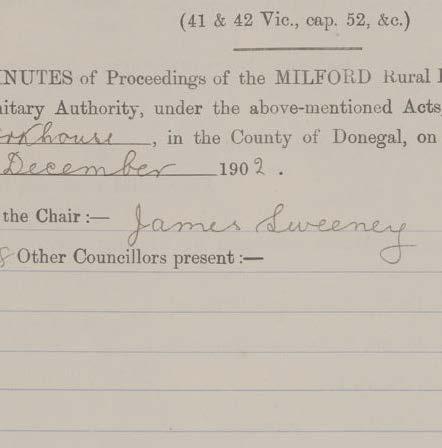 (41 & 42 Vic., cap. 52, &c.)
INUTES of Proceedings of the MILFORD Rural
nitary Authority, under the above-mentioned Acts
orkhouse, in the County of Donegal, on
December 1902.
the Chair:— James Sweeney
8 Other Councillors present:—